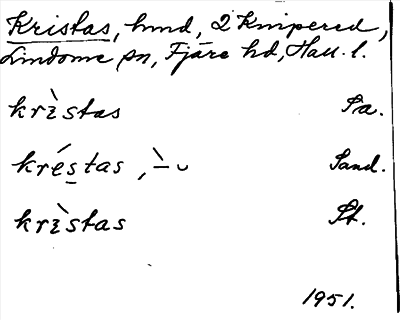 Kristas, hmd, 2 Knipered,
Lindome sn, Fjäre hd, Hall. l.
krìstas Sa.
kréstas, ̀– ᴗ Sand.
krìstas St.
1951.